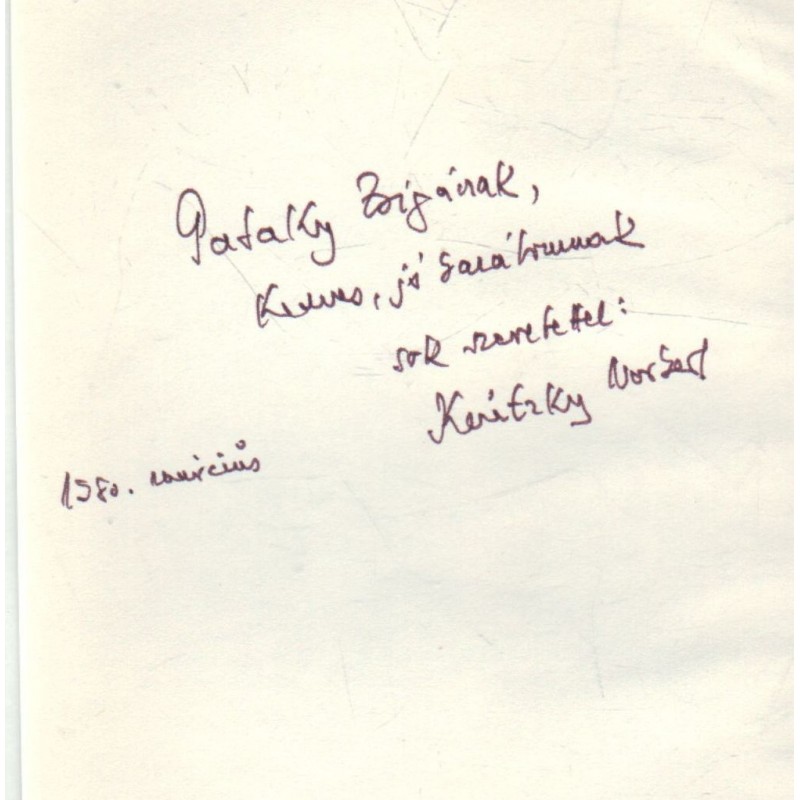 Pataky Zsigának,
Kedves, jó barátomnak
sok szeretettel:
Norbert
1980. március